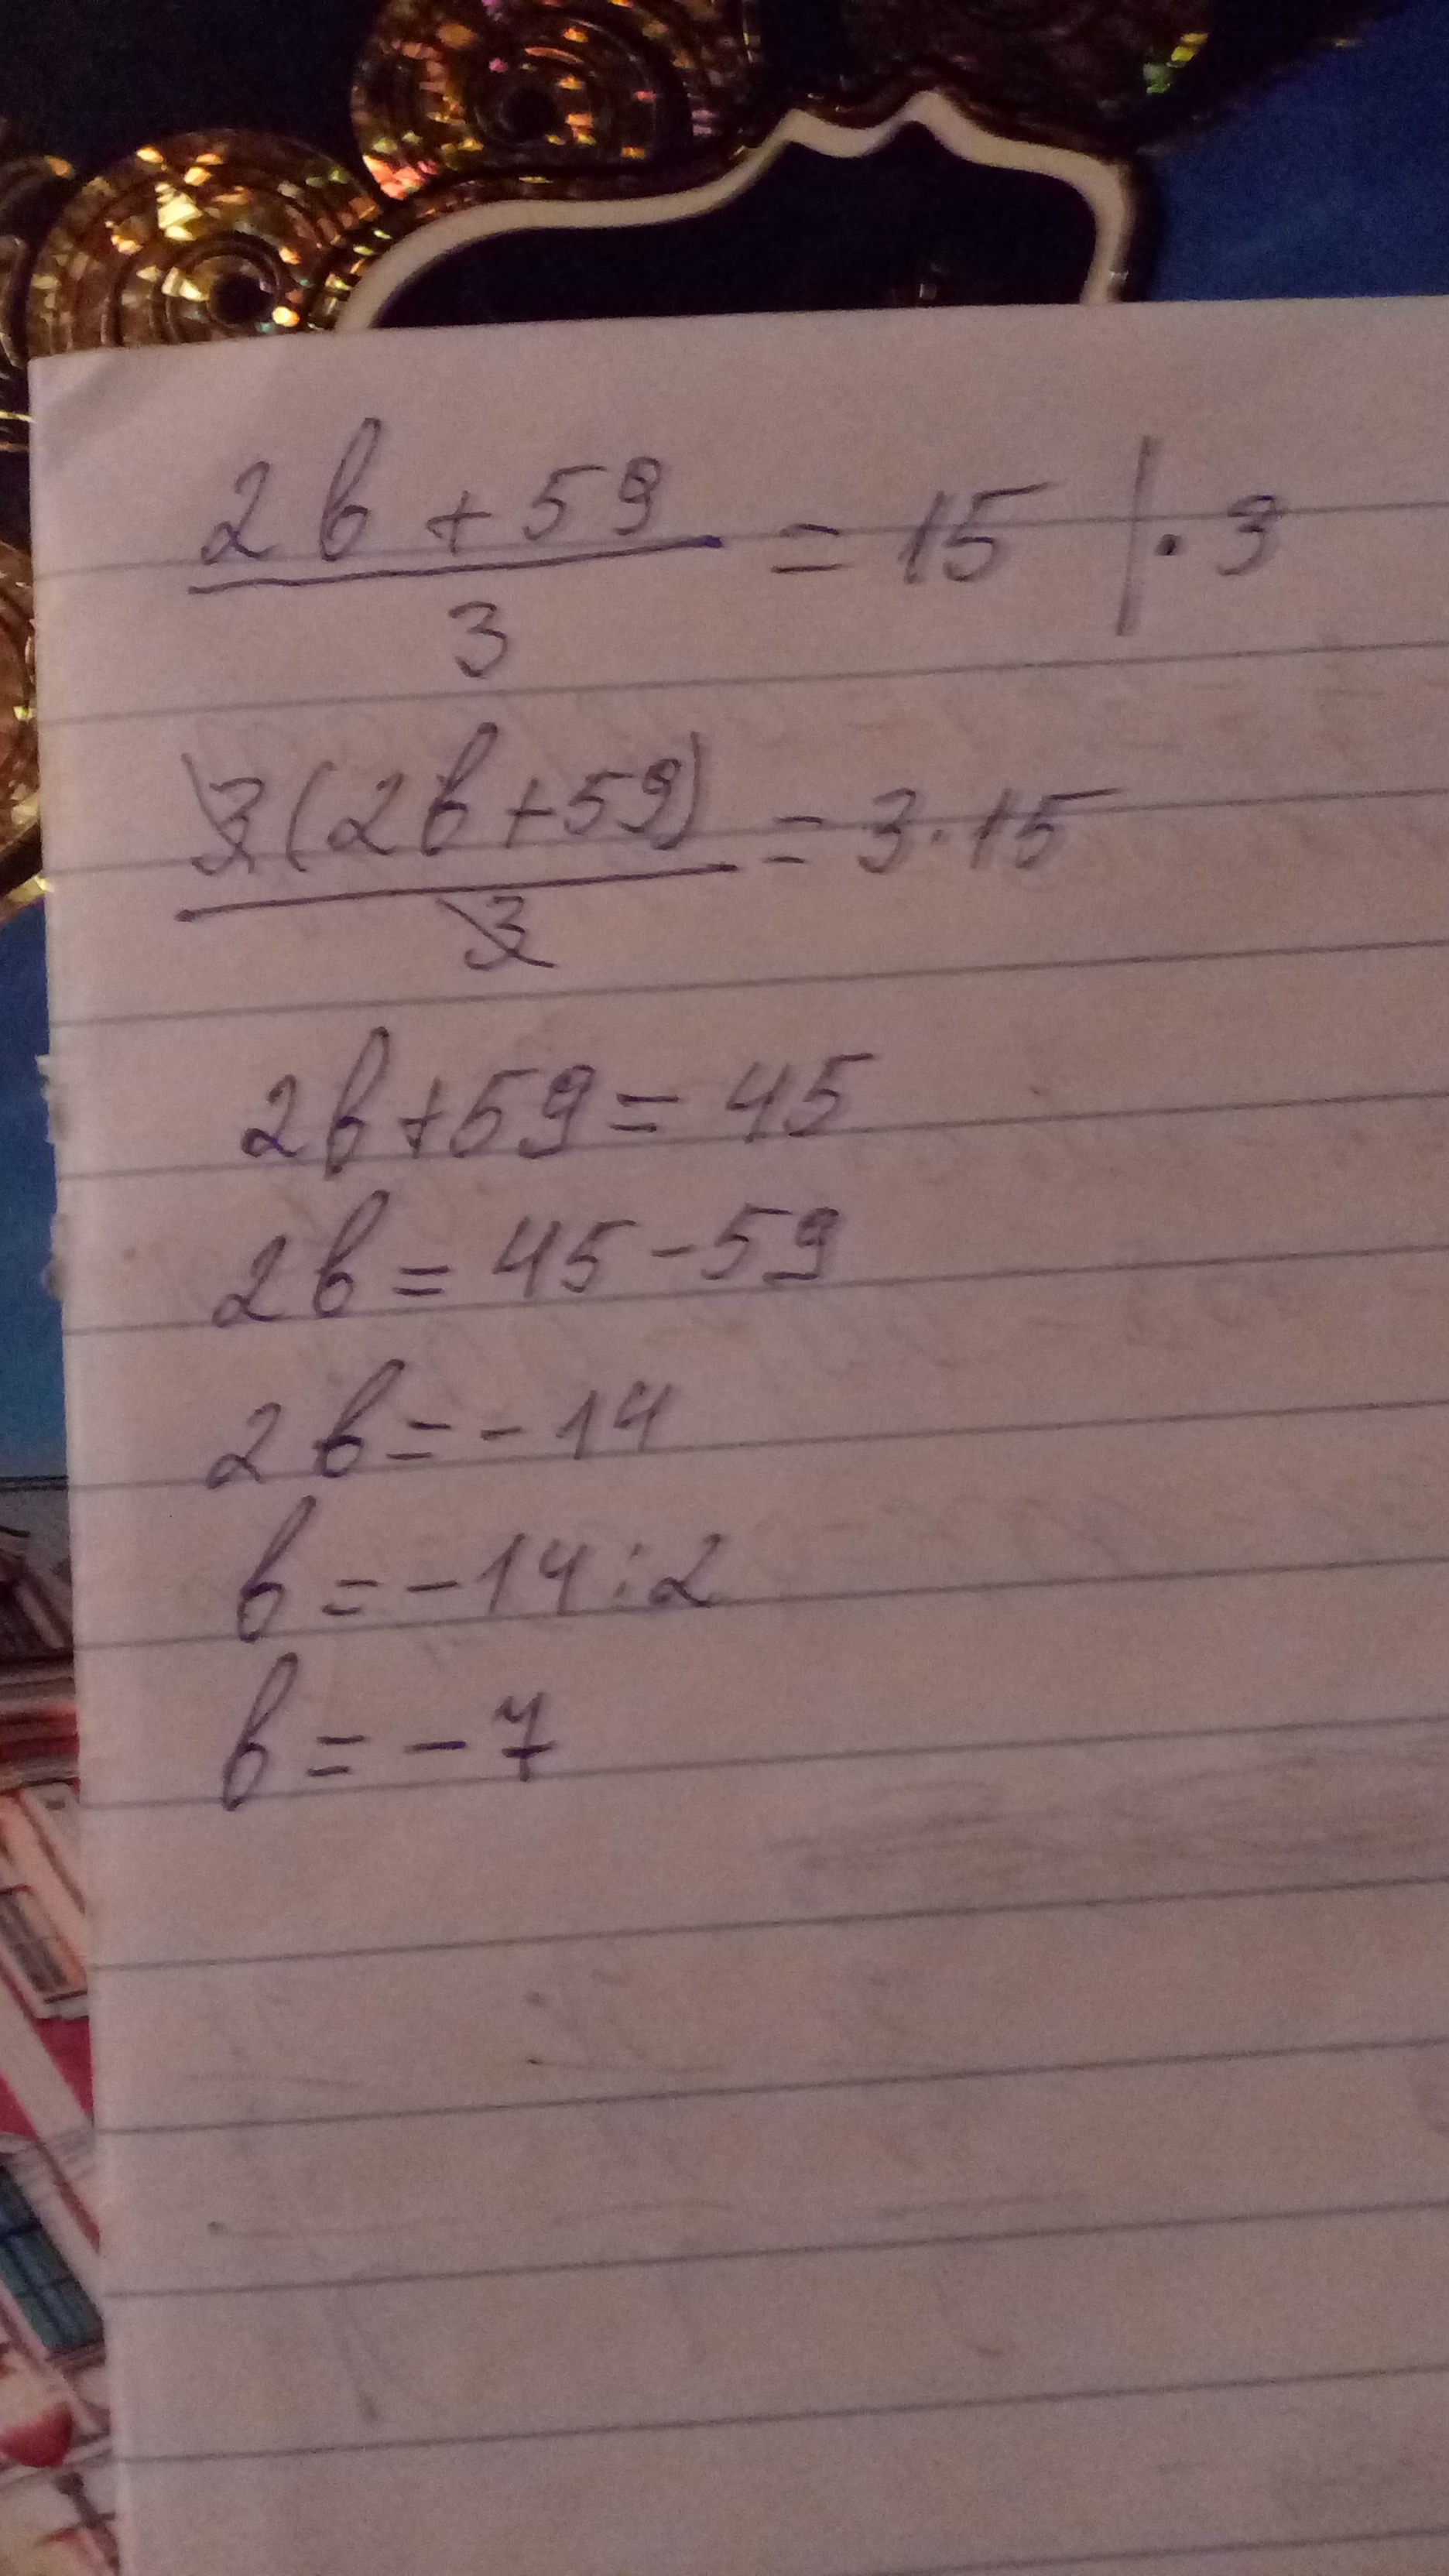 2b + 59 / 3 = 15 | · 3
3(2b+59) / 3 = 3·15
2b+59 = 45
2b = 45 - 59
2b = - 14
b = - 14 : 2
b = - 7